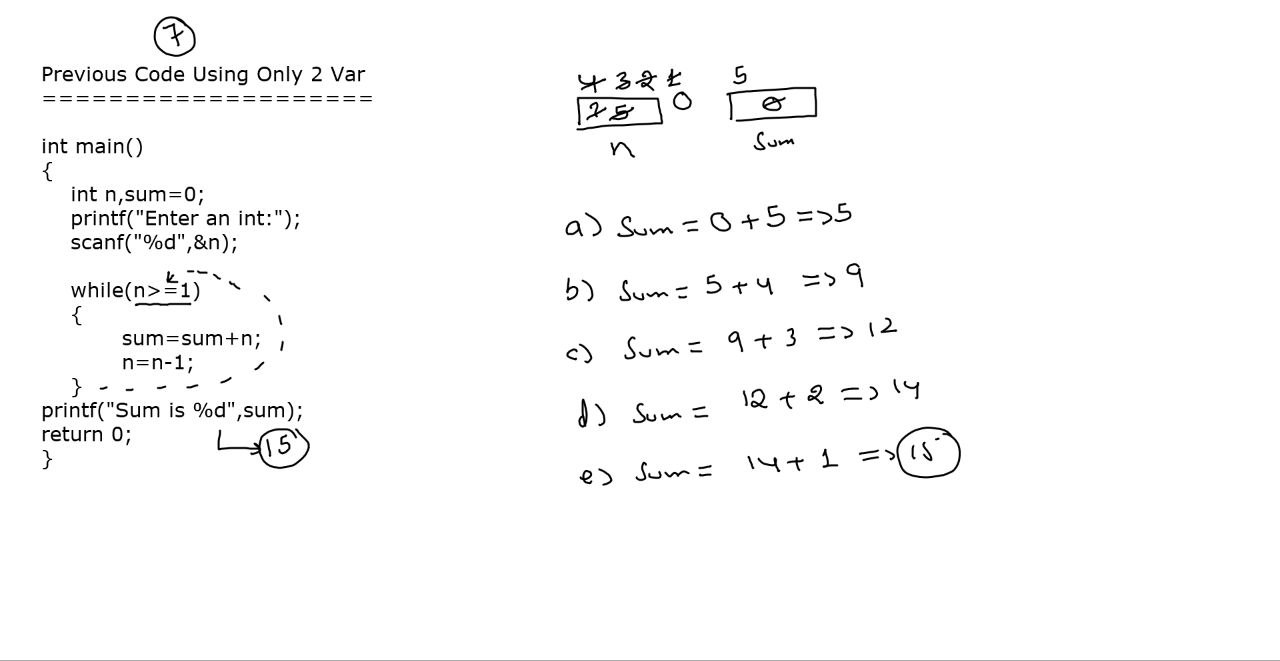 7
Previous Code Using Only 2 Var
====================
int main()
{
int n,sum=0;
printf("Enter an int:");
scanf("%d",&n);
while(n>=1)
{
sum=sum+n;
n=n-1;
}
printf("Sum is %d",sum);
return 0;
}
15
4 3 2 1
5
0
0
n
Sum
a) Sum = 0 + 5 => 5
b) Sum = 5 + 4 => 9
c) Sum = 9 + 3 => 12
d) Sum = 12 + 2 => 14
e) Sum = 14 + 1 => 15